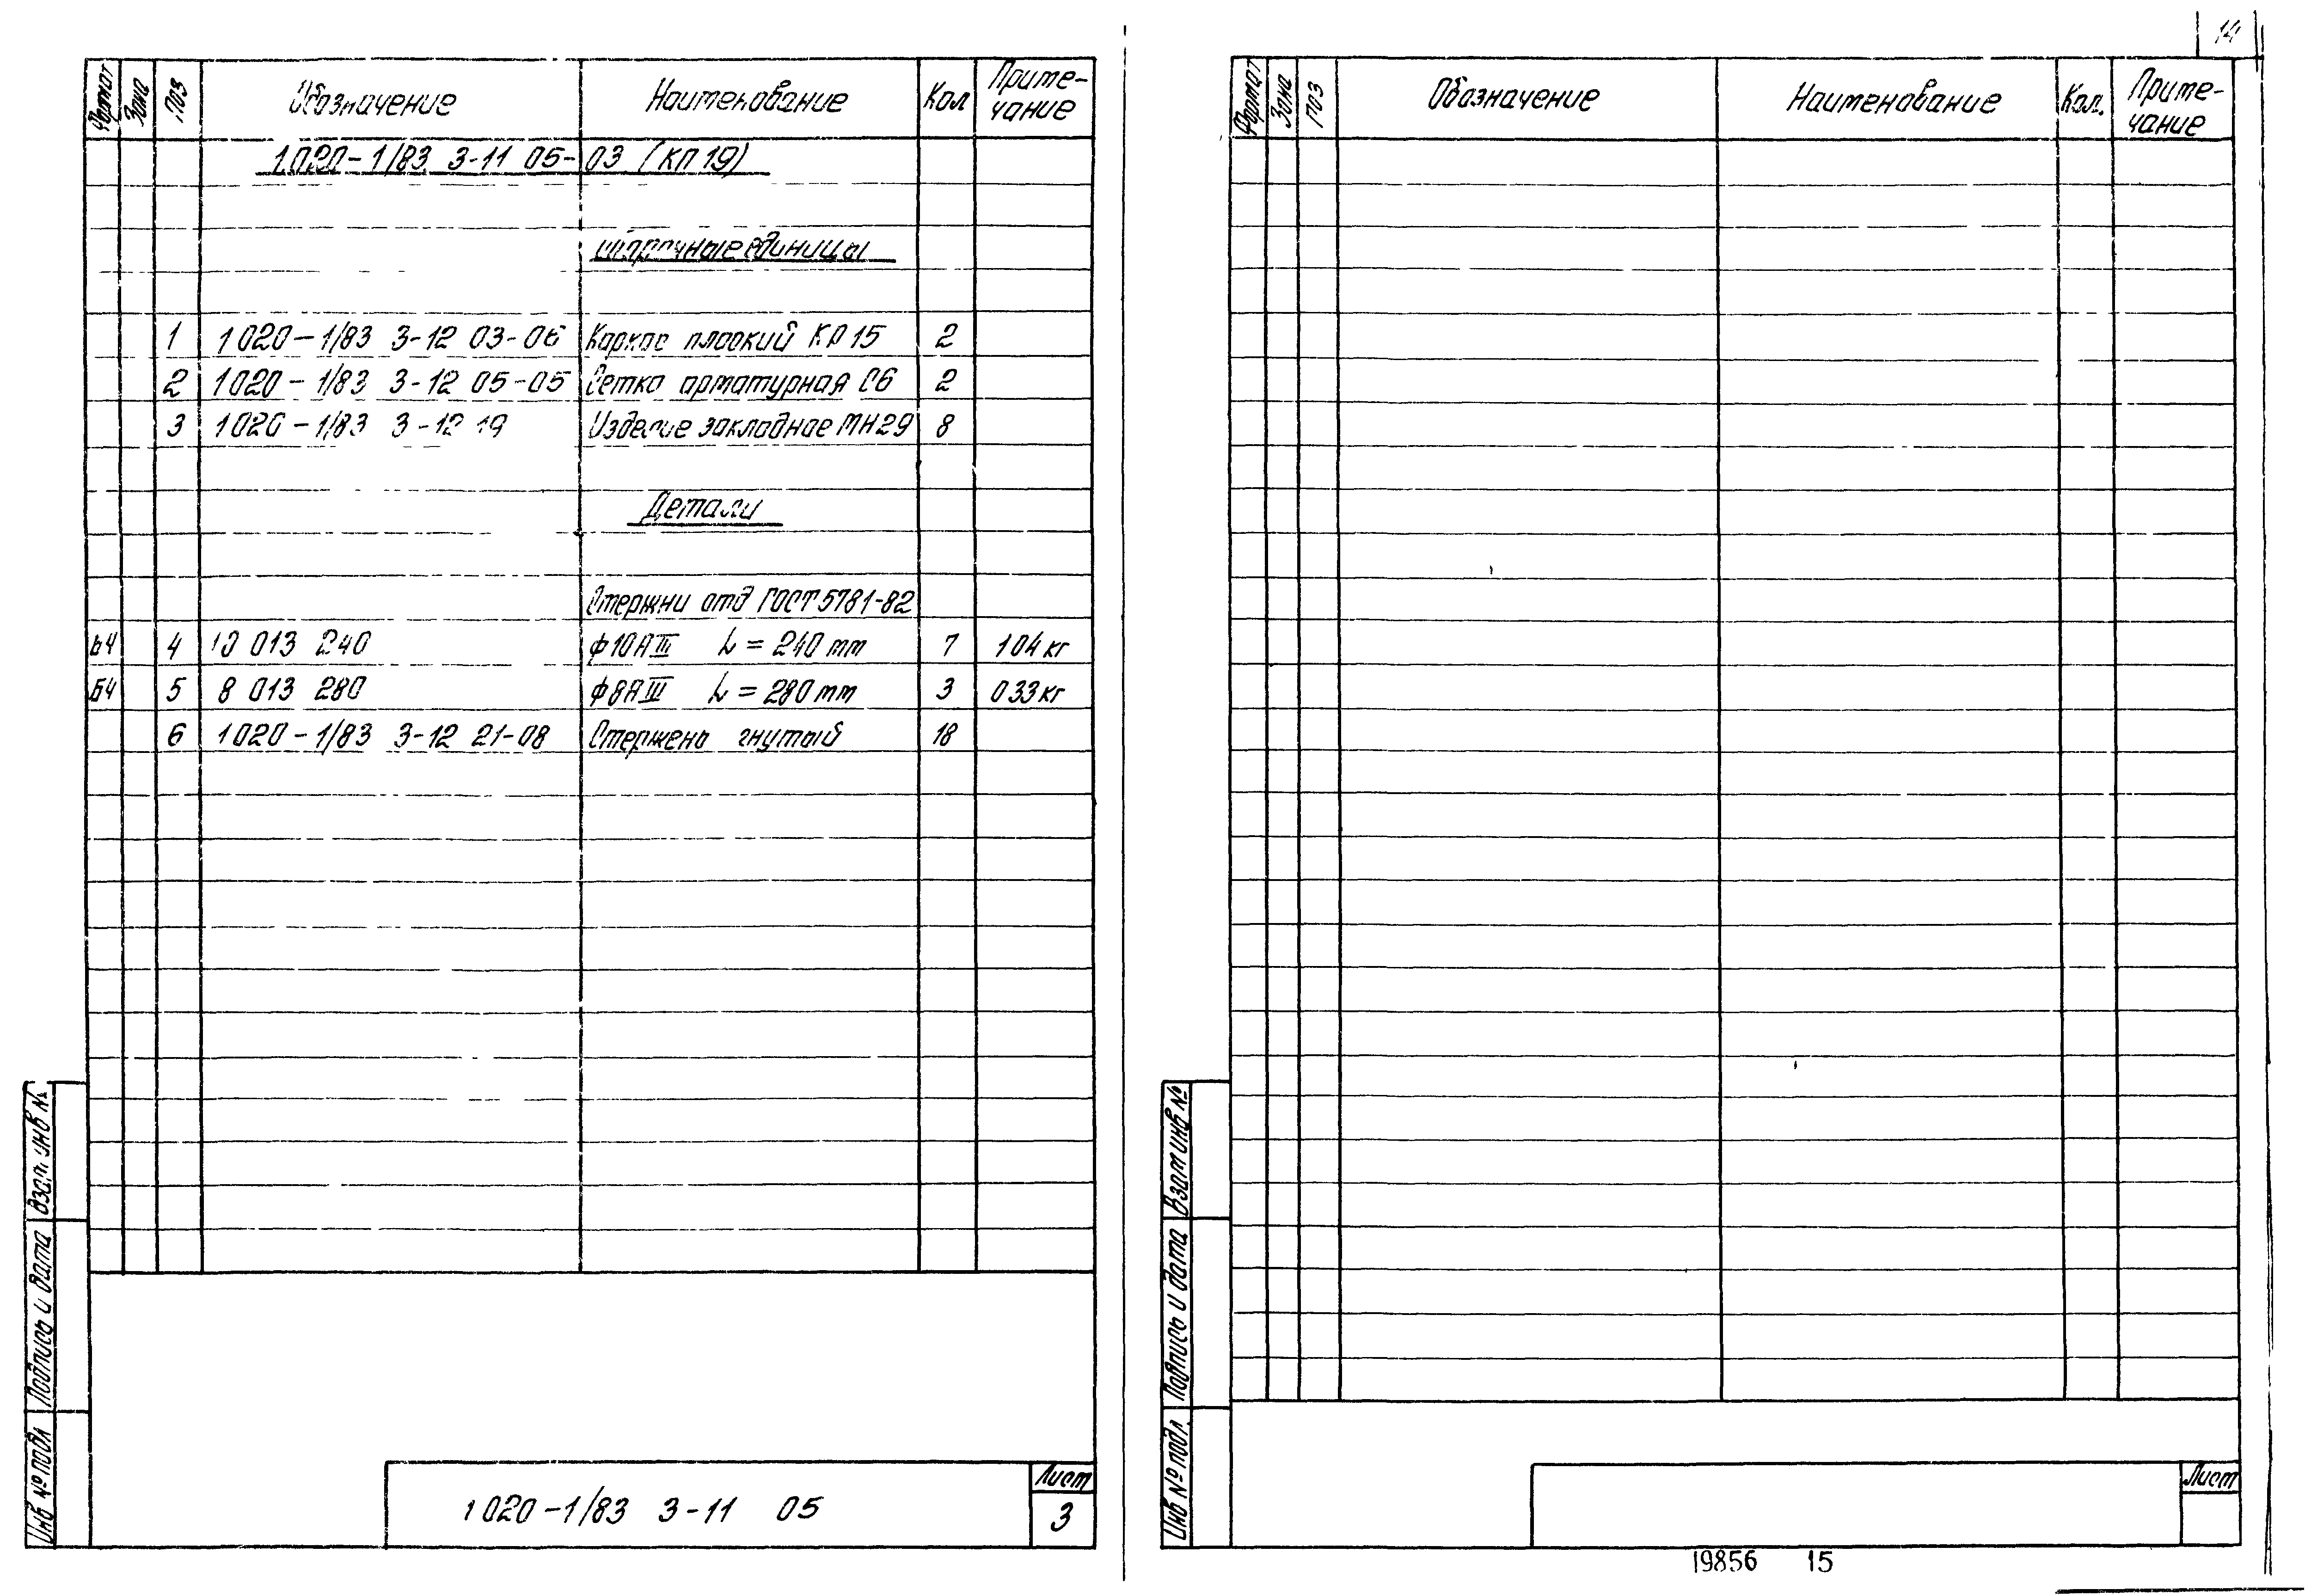 14
Формат Зона Поз Обозначение Наименование Кол Приме-
чание
1.020-1/83 3-11 05-03 (КП19)
Сборочные единицы
1 1020-1/83 3-12 03-06 Каркас плоский КР15 2
2 1020-1/83 3-12 05-05 Сетка арматурная С6 2
3 1020-1/83 3-12 19 Изделие закладное МН29 8
Детали
Стержни отд ГОСТ5781-82
Б4 4 10 013 240 ф10АIII L=240мм 7 104кг
Б4 5 8 013 280 ф8АIII L=280мм 3 033кг
6 1020-1/83 3-12 21-08 Стержень гнутый 18
Взам. инв №
Подпись и дата
Инв № подл
1020-1/83 3-11 05
Лист
3
Формат Зона Поз Обозначение Наименование Кол. Приме-
чание
Взам инв №
Подпись и дата
Инв № подл
Лист
19856 15